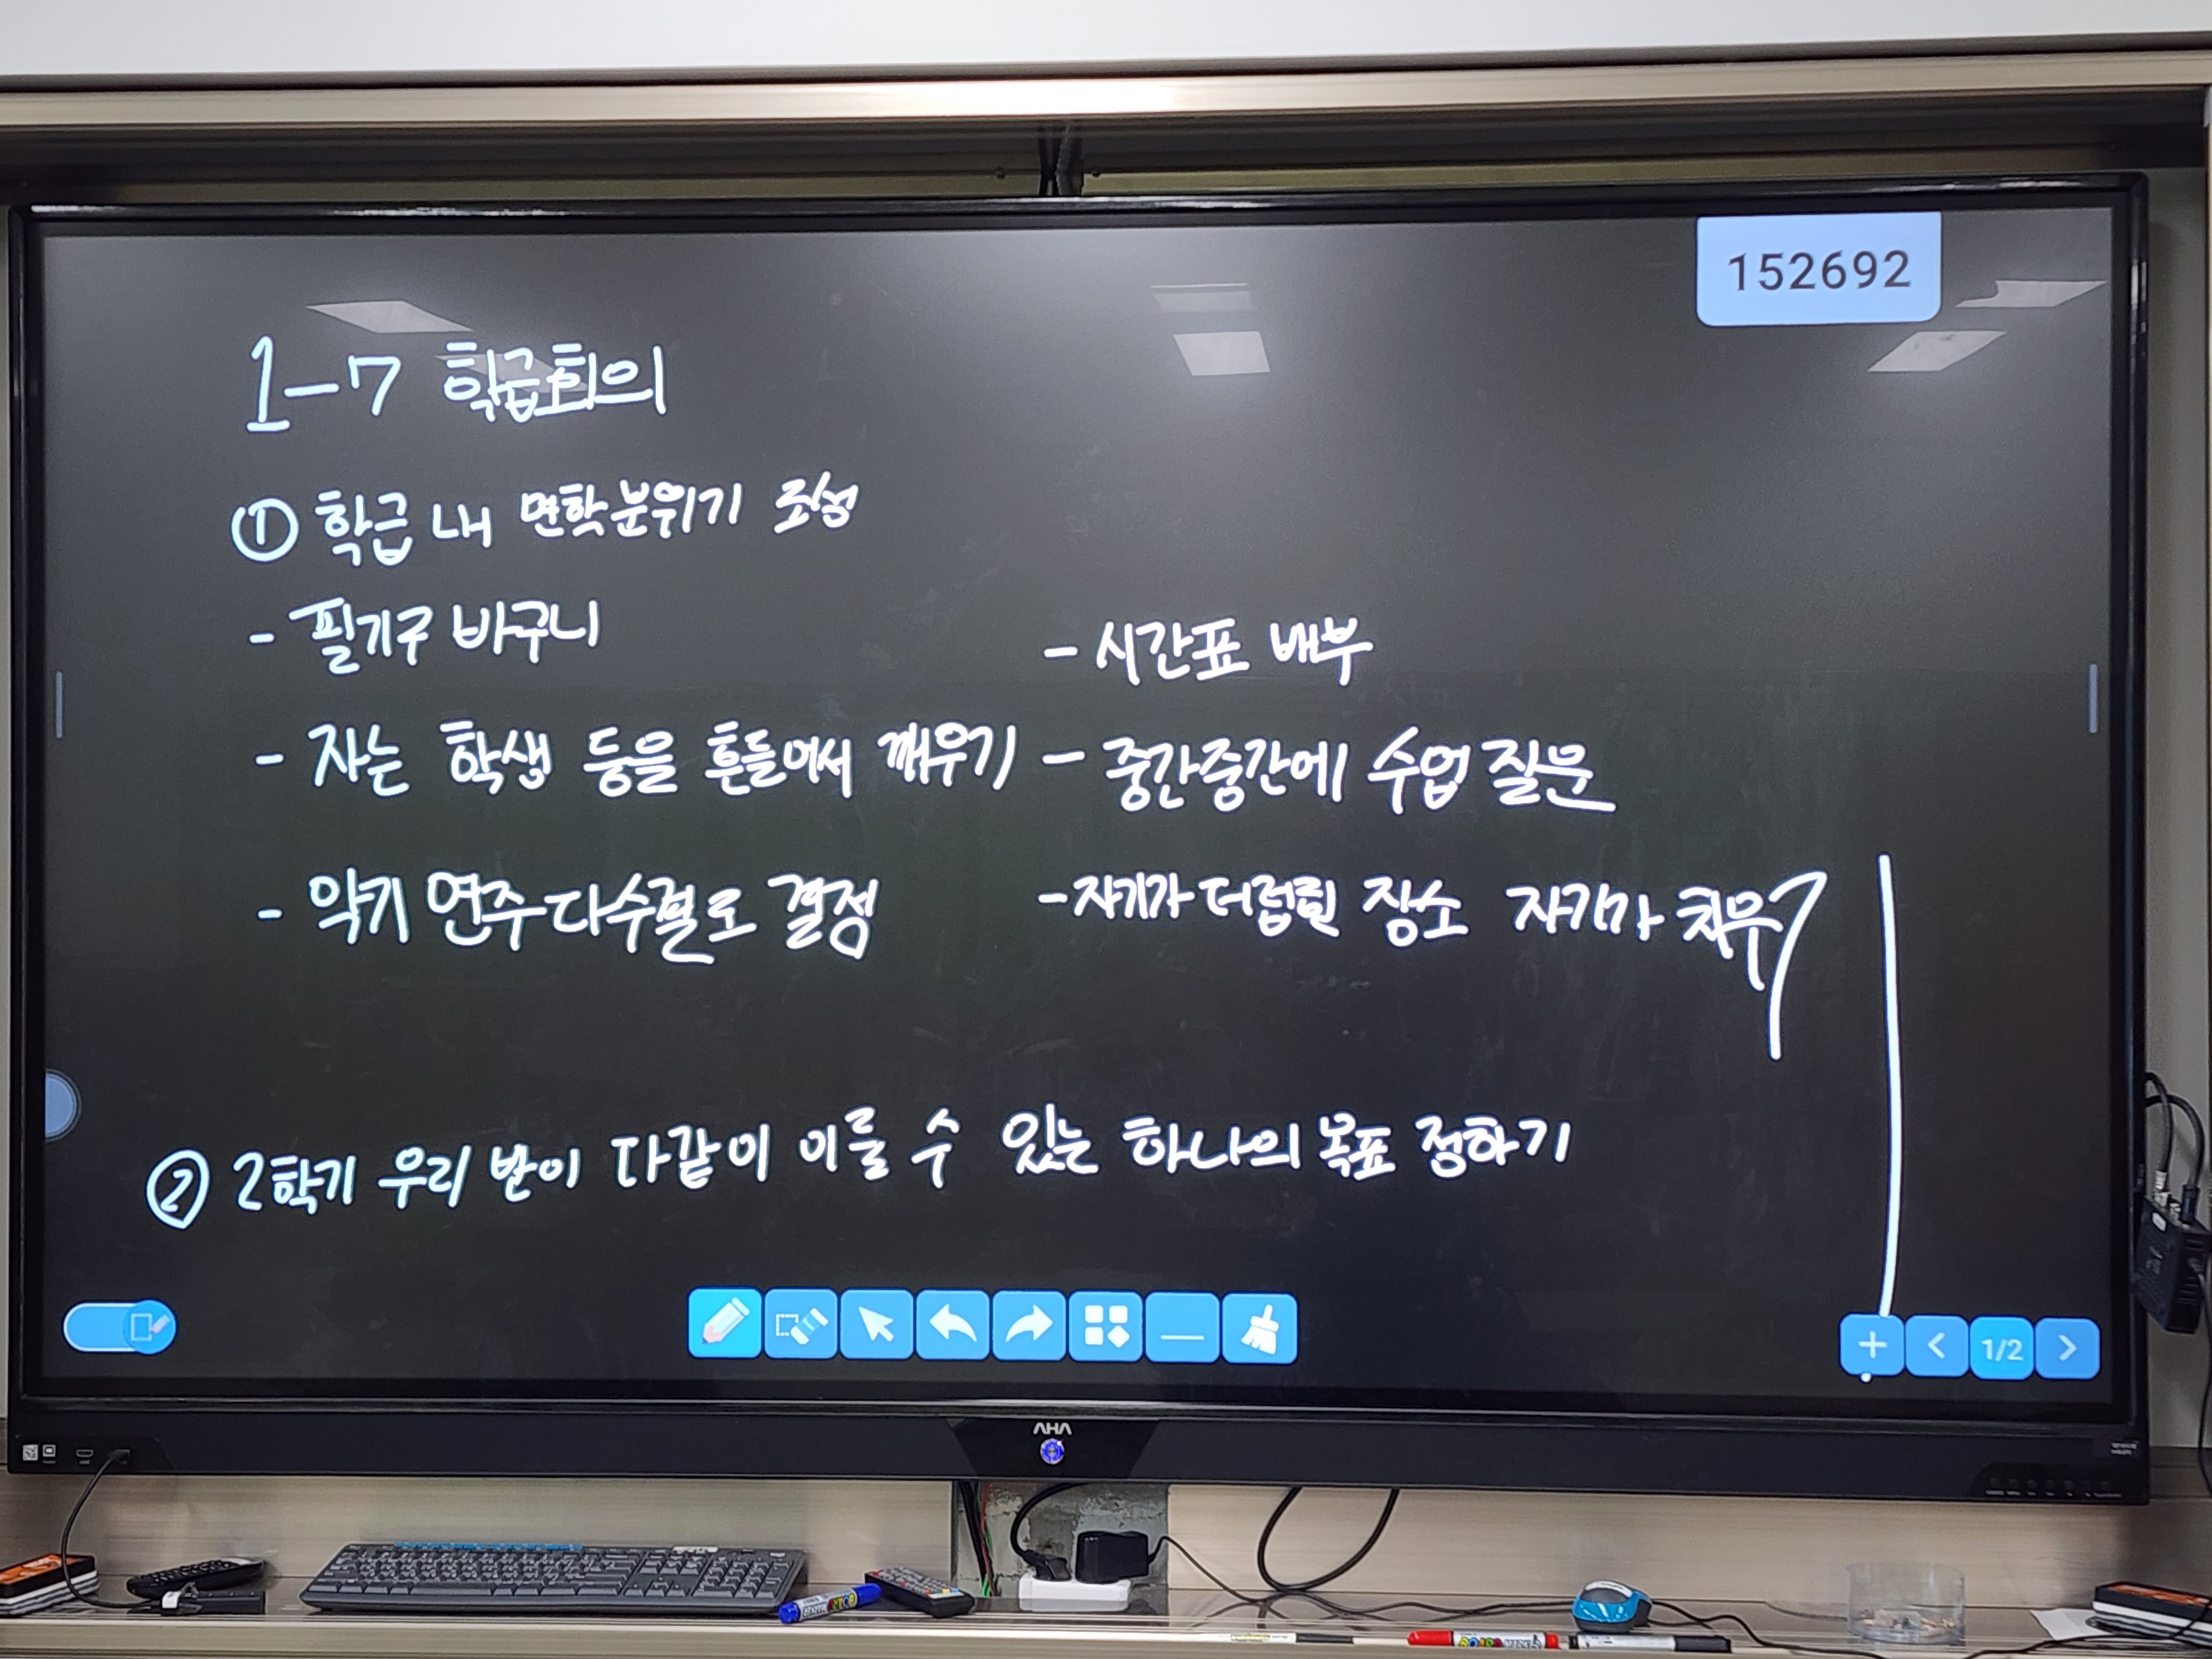 152692
1-7 학급회의
① 학급 내 면학분위기 조성
- 필기구 바구니
- 시간표 배부
- 자는 학생 등을 흔들어서 깨우기
- 중간중간에 수업 질문
- 악기 연주 다수결로 결정
- 자기가 더럽힌 장소 자기가 치우기
② 2학기 우리 반이 다같이 이룰 수 있는 하나의 목표 정하기
1/2
AHA